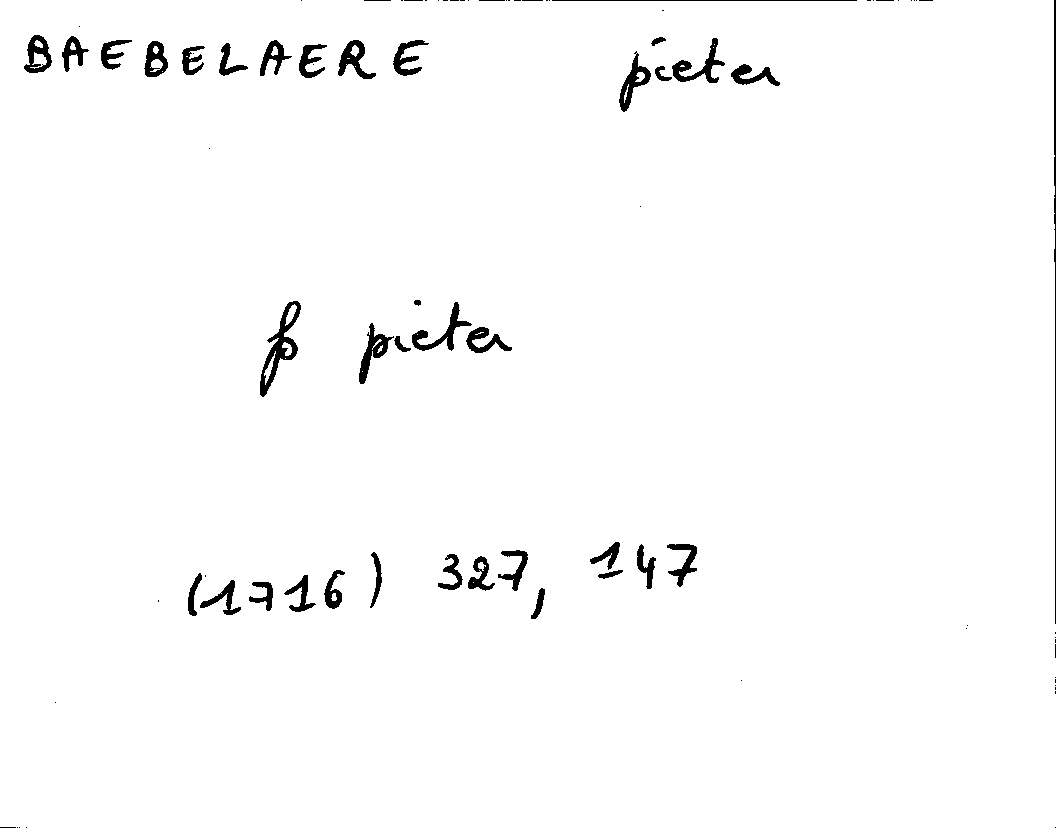 BAEBELAERE pieter
fs pieter
(1716) 327, 147